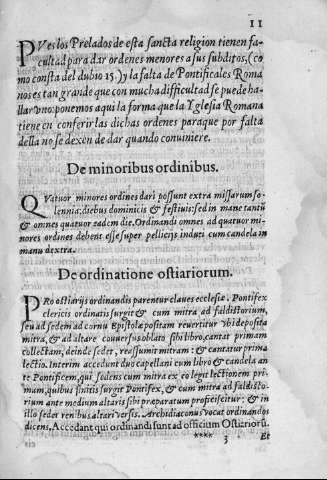 11
PVes los Prelados de esta sancta religion tienen fa-
cultad para dar ordenes menores a sus subditos, (co
mo consta del dubio 15.) y la falta de Pontificales Roma
nos es tan grande que con mucha difficultad se puede ha-
llar vno: ponemos aqui la forma que la Yglesia Romana
tiene en conferir las dichas ordenes paraque por falta
della no se dexen de dar quando conuiniere.
De minoribus ordinibus.
QVatuor minores ordines dari possunt extra missarum so-
lennia: diebus dominicis & festiuis: sed in mane tantũ
& omnes quatuor eadem die. Ordinandi omnes ad quatuor mi-
nores ordines debent esse super pellicijs induti cum candela in
manu dextra.
De ordinatione ostiariorum.
PRo ostiarijs ordinandis parentur claues ecclesiæ. Pontifex
clericis ordinatis surgit & cum mitra ad faldistorium,
seu ad sedem ad cornu Epistolæ positam reuertitur vbi deposita
mitra, & ad altare conuersus ablato sibi libro, cantat primam
collectam, deinde sedet, reassumit mitram: & cantatur prima
lectio. Interim accedunt duo capellani cum libro & candela an
te Pontificem, qui sedens cum mitra ex eo legit lectionem pri-
mam, quibus finitis surgit Pontifex, & cum mitra ad faldisto-
rium ante medium altaris sibi præparatum proficiscitur: & in
illo sedet renibus altari versis. Archidiaconus vocat ordinandos
dicens, Accedant qui ordinandi sunt ad officium Ostiariorũ.
**** 3 Et